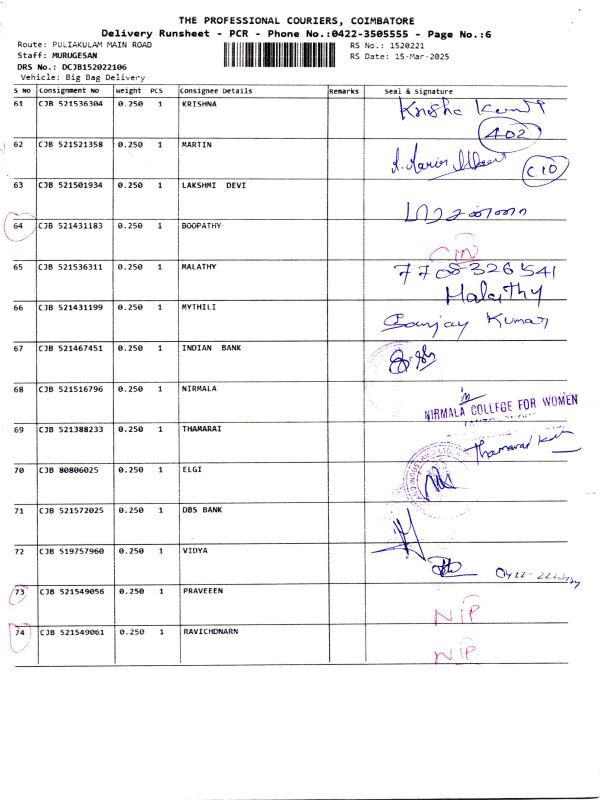 THE PROFESSIONAL COURIERS, COIMBATORE
Delivery Runsheet - PCR - Phone No.:0422-3505555 - Page No.:6
Route: PULIAKULAM MAIN ROAD RS No.: 1520221
Staff: MURUGESAN RS Date: 15-Mar-2025
DRS No.: DCJB152022106
Vehicle: Big Bag Delivery
S NO Consignment No Weight PCS Consignee Details Remarks Seal & Signature
61 CJB 521536304 0.250 1 KRISHNA
402
62 CJB 521521358 0.250 1 MARTIN
C10
63 CJB 521501934 0.250 1 LAKSHMI DEVI
64 CJB 521431183 0.250 1 BOOPATHY
65 CJB 521536311 0.250 1 MALATHY 7708326541
Malaithy
66 CJB 521431199 0.250 1 MYTHILI Sanjay Kumar
67 CJB 521467451 0.250 1 INDIAN BANK
68 CJB 521516796 0.250 1 NIRMALA
NIRMALA COLLEGE FOR WOMEN
69 CJB 521388233 0.250 1 THAMARAI
70 CJB 80806025 0.250 1 ELGI
71 CJB 521572025 0.250 1 DBS BANK
72 CJB 519757960 0.250 1 VIDYA
73 CJB 521549056 0.250 1 PRAVEEEN
NIP
74 CJB 521549061 0.250 1 RAVICHDNARN
NIP